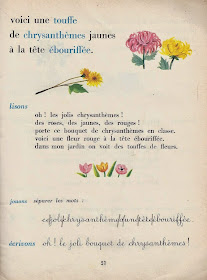 voici une touffe
de chrysanthèmes jaunes
à la tête ébouriffée.
lisons
oh! les jolis chrysanthèmes!
des roses, des jaunes, des rouges!
porte ce bouquet de chrysanthèmes en classe.
voici une fleur rouge à la tête ébouriffée.
dans mon jardin on voit des touffes de fleurs.
jouons séparer les mots :
écrivons oh! le joli bouquet de chrysanthèmes!